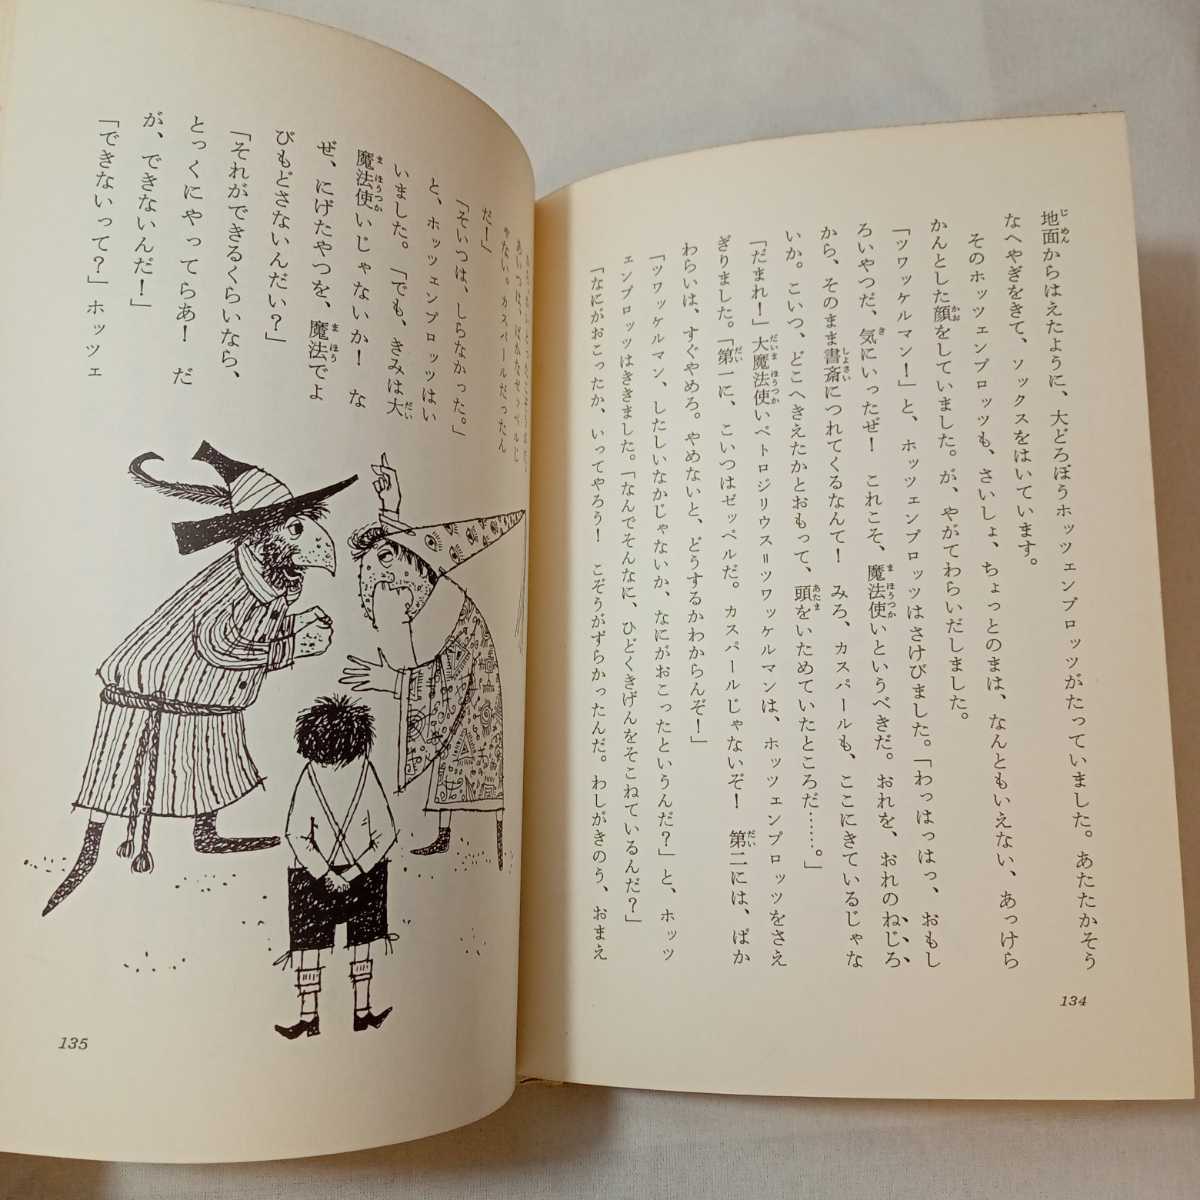 地面からはえたように、大どろぼうホッツェンプロッツがたっていました。あたたかそう
なへやぎをきて、ソックスをはいています。
そのホッツェンプロッツも、さいしょ、ちょっとのまは、なんともいえない、あっけら
かんとした顔をしていました。が、やがてわらいだしました。
「ツワッケルマン！」と、ホッツェンプロッツはさけびました。「わっはっはっ、おもし
ろいやつだ、気にいったぜ！　これこそ、魔法使いというべきだ。おれを、おれのねじろ
から、そのまま書斎につれてくるなんて！　みろ、カスパールも、ここにきているじゃな
いか。こいつ、どこへきえたかとおもって、頭をいためていたところだ……。」
「だまれ！」大魔法使いペトロジリウス＝ツワッケルマンは、ホッツェンプロッツをさえ
ぎりました。「第一に、こいつはゼッペルだ。カスパールじゃないぞ！　第二には、ばか
わらいは、すぐやめろ。やめないと、どうするかわからんぞ！」
「ツワッケルマン、したしいなかじゃないか、なにがおこったというんだ？」と、ホッツ
ェンプロッツはききました。「なんでそんなに、ひどくきげんをそこねているんだ？」
「なにがおこったか、いってやろう！　こぞうがずらかったんだ。わしがきのう、おまえ
134
あいつは、ばかなゼッペルじ
ゃない。カスパールだったん
だ！」
「そいつは、しらなかった。」
と、ホッツェンプロッツはい
いました。「でも、きみは大
魔法使いじゃないか！　な
ぜ、にげたやつを、魔法でよ
びもどさないんだい？」
「それができるくらいなら、
とっくにやってらあ！　だ
が、できないんだ！」
「できないって？」ホッツェ
135